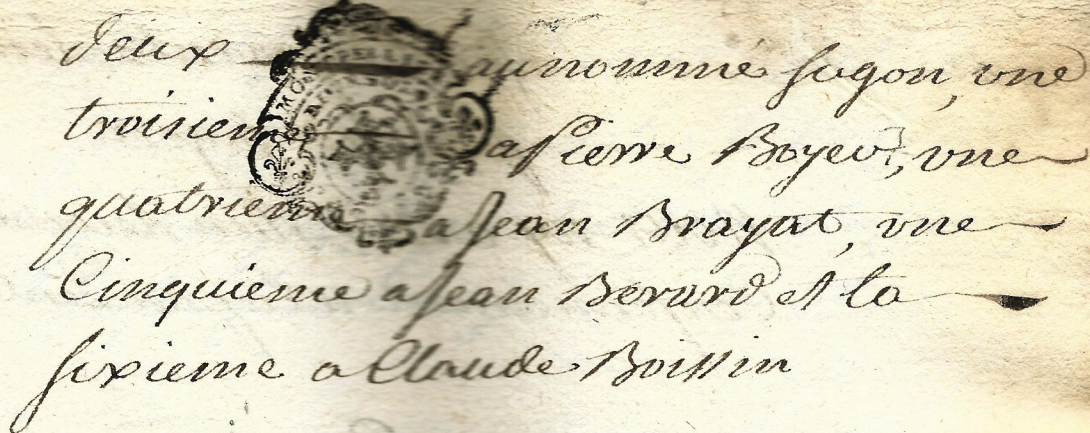 deux au nommé sugon, une
troisiem a Pierre Boyer, une
quatrieme a Jean Brayat, une
Cinquieme a Jean Berard et la
sixieme a Claude Boissin